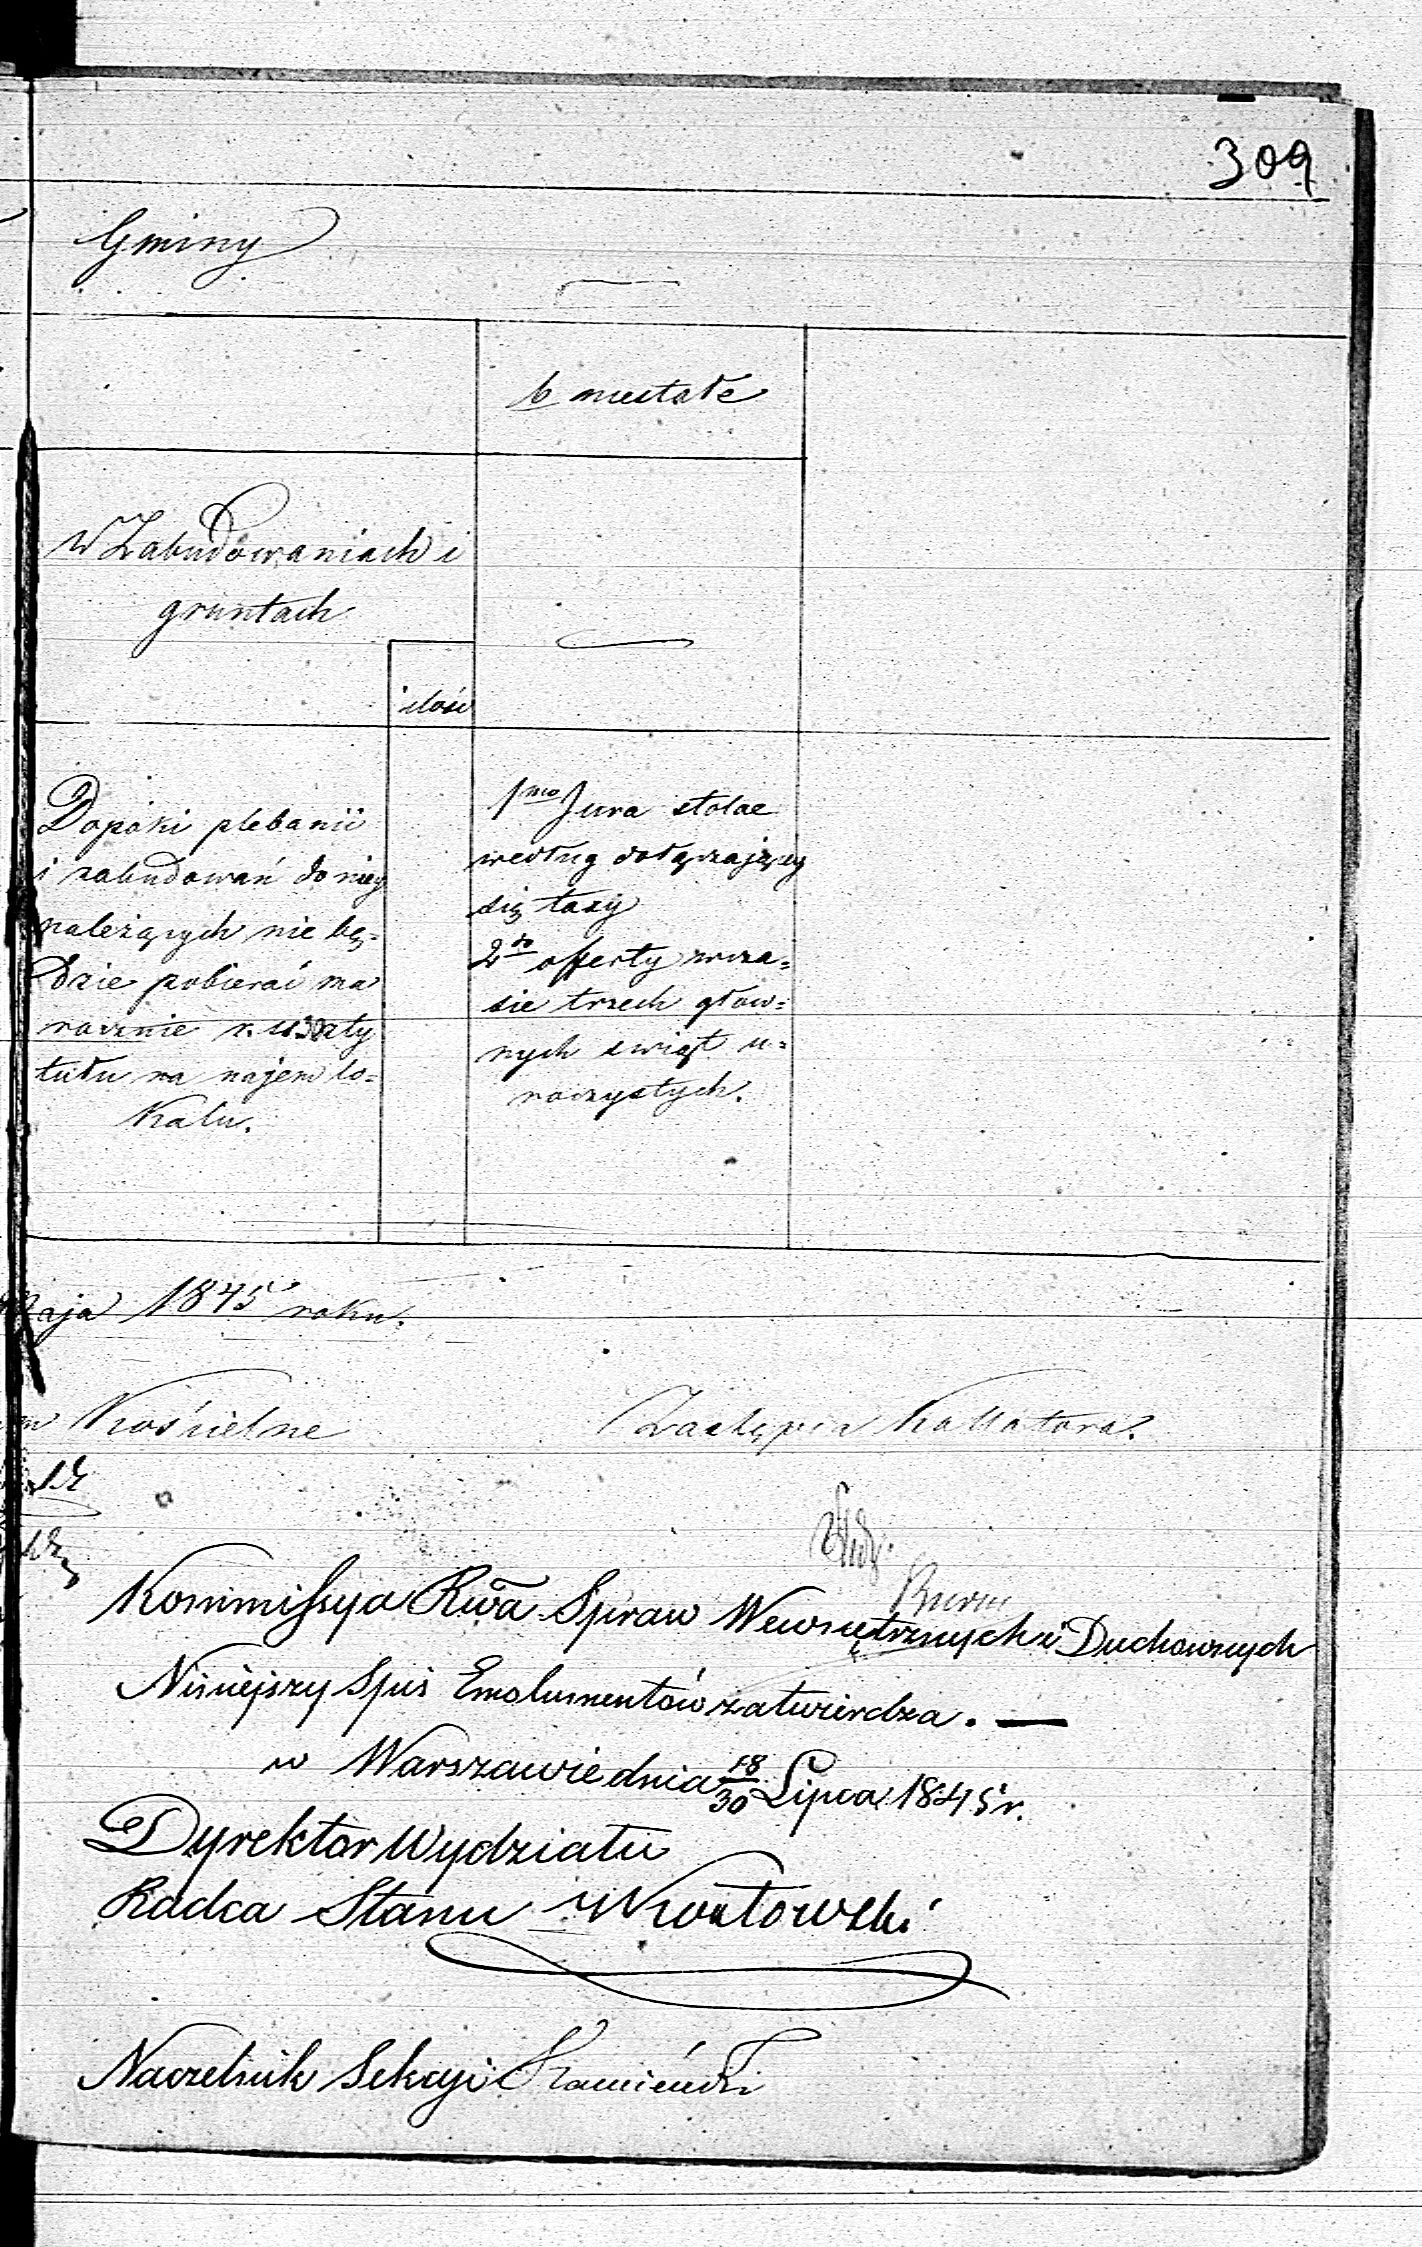 309
Gminy
b niestałe
w Zabudowaniach i
gruntach
ilość
Dopóki plebanii
i zabudowań do niey
należących nie bę-
dzie pobierać ma
rocznie r. s. 30 z ty
tułu na najem lo-
kalu.
1mo Jura stolae
według dołączającey
się taxy
2do offerty w cza-
sie trzech głów-
nych swiąt u-
roczystych.
Maja 1845 roku.
Kościelne
Zastępca Kollatora.
Kommissya Rwa Spraw Wewnętrznych i Duchownych
Ninieyszy Spis Emolumentów zatwierdza. —
w Warszawie dnia 18/30 Lipca 1845 r.
Dyrektor Wydziału
Radca Stanu
Naczelnik Sekcyi Kamieński